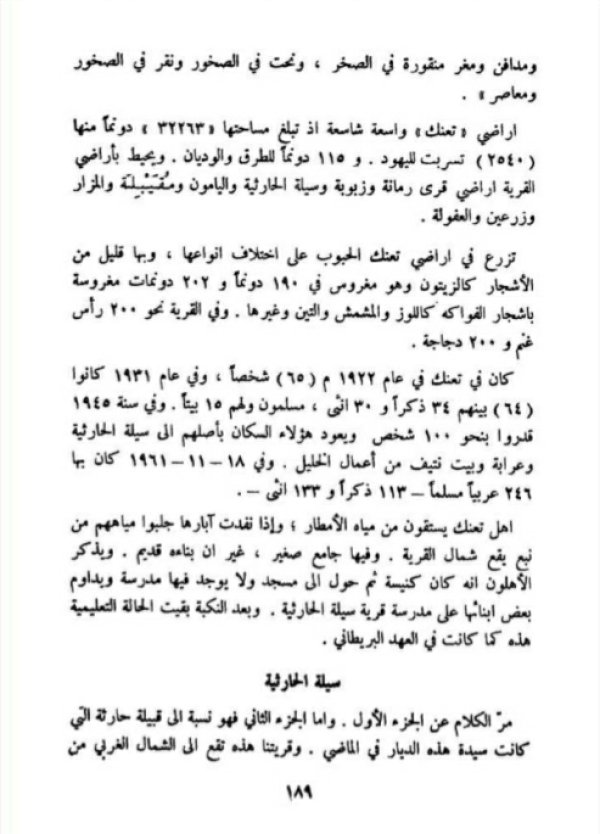 ومدافن ومغر منقورة في الصخر ، ونحت في الصخور ونقر في الصخور
ومعاصر » .
اراضي « تعنك » واسعة شاسعة اذ تبلغ مساحتها « ٣٢٢٦٣ » دونماً منها
( ٢٥٤٠ ) تسربت لليهود . و ١١٥ دونماً للطرق والوديان . ويحيط بأراضي
القرية اراضي قرى رمانة وزبوبة وسيلة الحارثية واليامون ومُقَيْبِلَة والمزار
وزرعين والعفولة .
تزرع في اراضي تعنك الحبوب على اختلاف انواعها ، وبها قليل من
الأشجار كالزيتون وهو مغروس في ١٩٠ دونماً و ٢٠٢ دونمات مغروسة
باشجار الفواكه كاللوز والمشمش والتين وغيرها . وفي القرية نحو ٢٠٠ رأس
غنم و ٢٠٠ دجاجة .
كان في تعنك في عام ١٩٢٢ م ( ٦٥ ) شخصاً ، وفي عام ١٩٣١ كانوا
( ٦٤ ) بينهم ٣٤ ذكراً و ٣٠ انثى ، مسلمون ولهم ١٥ بيتاً . وفي سنة ١٩٤٥
قدروا بنحو ١٠٠ شخص ويعود هؤلاء السكان بأصلهم الى سيلة الحارثية
وعرابة وبيت نتيف من أعمال الخليل . وفي ١٨ – ١١ – ١٩٦١ كان بها
٢٤٦ عربياً مسلماً – ١١٣ ذكراً و ١٣٣ انثى – .
اهل تعنك يستقون من مياه الأمطار ؛ وإذا نفدت آبارها جلبوا مياههم من
نبع يقع شمال القرية . وفيها جامع صغير ، غير ان بناءه قديم . ويذكر
الأهلون انه كان كنيسة ثم حول الى مسجد ولا يوجد فيها مدرسة ويداوم
بعض ابنائها على مدرسة قرية سيلة الحارثية . وبعد النكبة بقيت الحالة التعليمية
هذه كما كانت في العهد البريطاني .
سيلة الحارثية
مرّ الكلام عن الجزء الأول . واما الجزء الثاني فهو نسبة الى قبيلة حارثة التي
كانت سيدة هذه الديار في الماضي . وقريتنا هذه تقع الى الشمال الغربي من
١٨٩